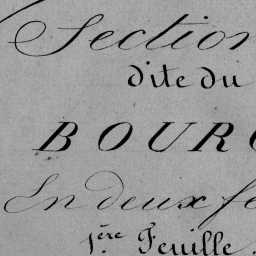 Section
dite du
BOURG
En deux fe
1ère Feuille.